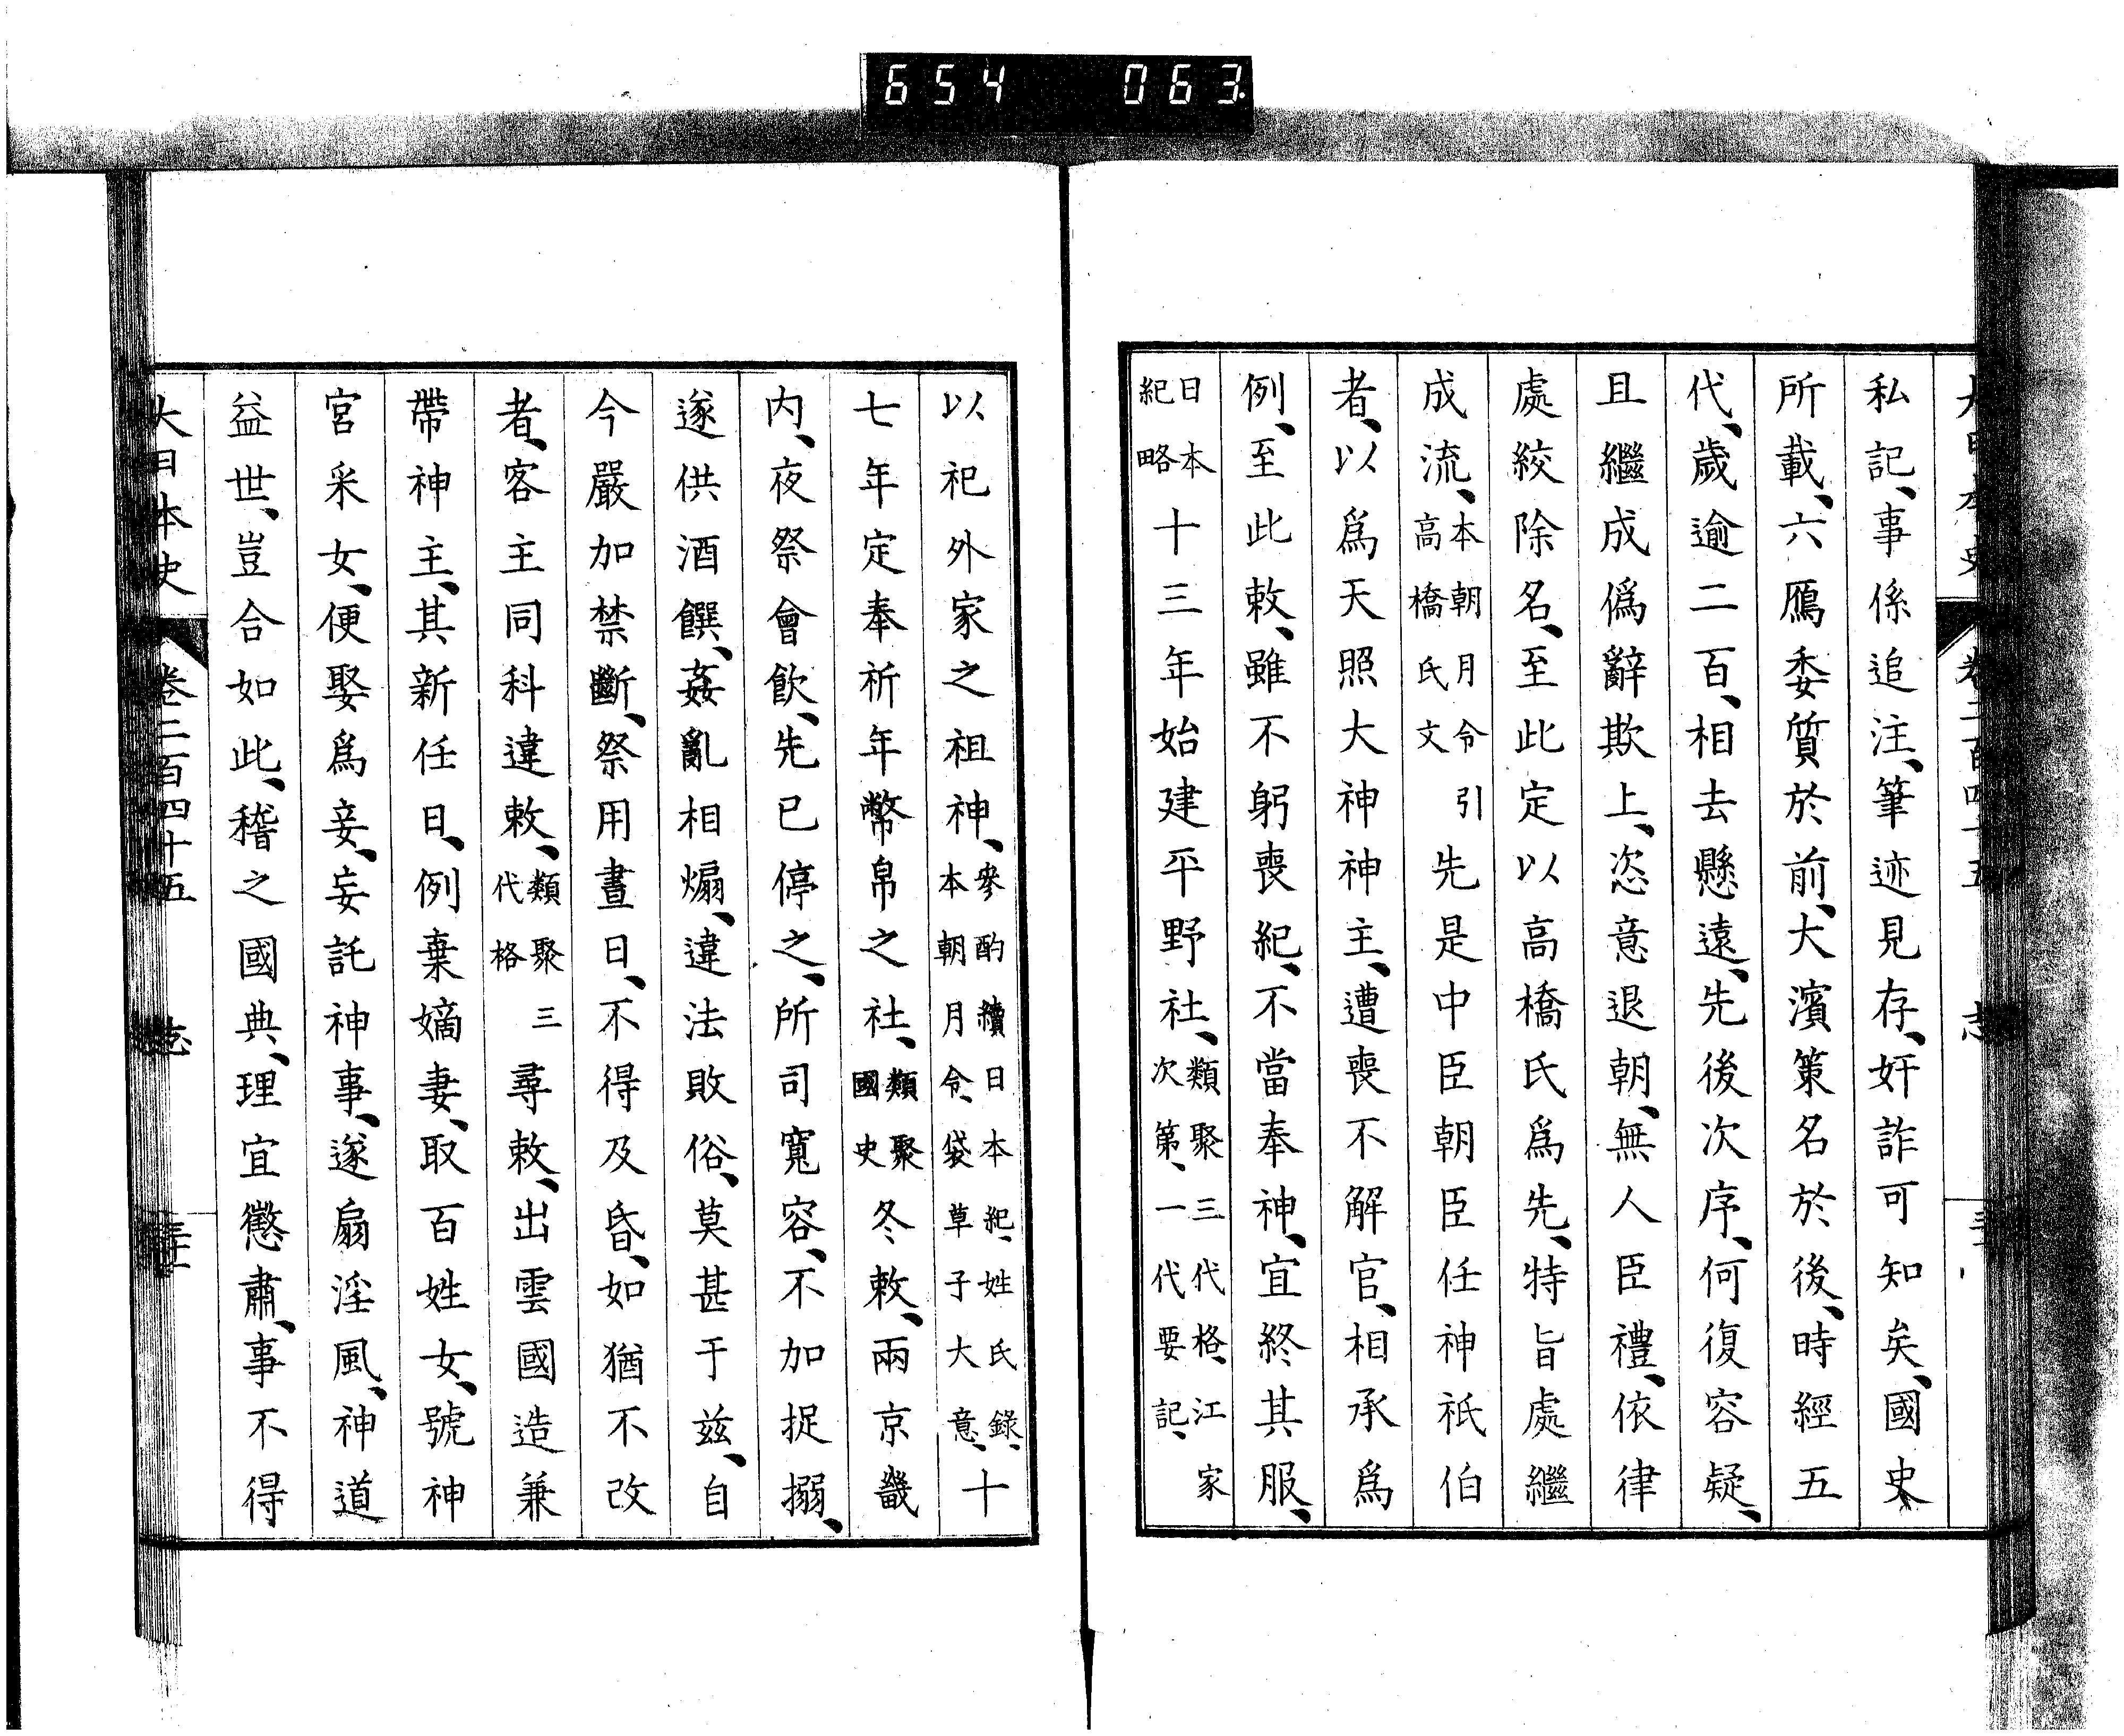 654 063
私記、事係追注、筆迹見存、奸詐可知矣、國史
所載、六鴈委質於前、大濱策名於後、時經五
代、歲逾二百、相去懸遠、先後次序、何復容疑、
且繼成僞辭欺上、恣意退朝、無人臣禮、依律
處絞除名、至此定以高橋氏爲先、特旨處繼
成流、本朝月令引高橋氏文先是中臣朝臣任神祇伯
者、以爲天照大神神主、遭喪不解官、相承爲
例、至此敕、雖不躬喪紀、不當奉神、宜終其服、
日本紀略十三年始建平野社、類聚三代格、江家次第、一代要記、
以祀外家之祖神、參酌續日本紀、姓氏錄、本朝月令、袋草子大意、十
七年定奉祈年幣帛之社、類聚國史冬敕、兩京畿
内、夜祭會飮、先已停之、所司寬容、不加捉搦、
遂供酒饌、姦亂相煽、違法敗俗、莫甚于兹、自
今嚴加禁斷、祭用晝日、不得及昏、如猶不改
者、客主同科違敕、類聚三代格尋敕、出雲國造兼
帶神主、其新任日、例棄嫡妻、取百姓女、號神
宮采女、便娶爲妾、妄託神事、遂扇淫風、神道
益世、豈合如此、稽之國典、理宜懲肅、事不得
大日本史 卷二百四十五 志